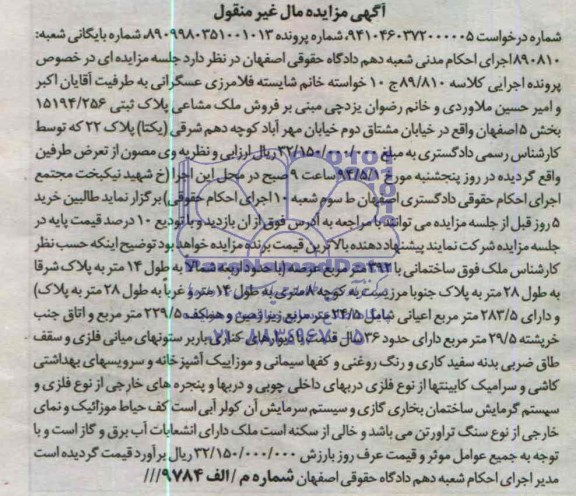 آگهی مزایده مال غیر منقول
شماره درخواست ۹۴۱۰۴۶۰۳۷۲۰۰۰۰۰۵، شماره پرونده ۸۹۰۹۹۸۰۳۵۱۰۰۱۰۱۳، شماره بایگانی شعبه:
۸۹۰۸۱۰ اجرای احکام مدنی شعبه دهم دادگاه حقوقی اصفهان در نظر دارد جلسه مزایده ای در خصوص
پرونده اجرایی کلاسه ۸۹/۸۱۰ ج ۱۰ خواسته خانم شایسته فلامرزی عسگرانی به طرفیت آقایان اکبر
و امیر حسین ملاوردی و خانم رضوان یزدچی مبنی بر فروش ملک مشاعی پلاک ثبتی ۱۵۱۹۴/۲۵۶
بخش ۵ اصفهان واقع در خیابان مشتاق دوم خیابان مهر آباد کوچه دهم شرقی (یکتا) پلاک ۲۲ که توسط
کارشناس رسمی دادگستری به مبلغ ۳۲/۱۵۰/۰۰۰/۰۰۰ ریال ارزیابی و نظریه وی مصون از تعرض طرفین
واقع گردیده در روز پنجشنبه مورخ ساعت ۹ صبح در محل این اجرا (خ شهید نیکبخت مجتمع
اجرای احکام حقوقی دادگستری اصفهان ط سوم شعبه ۱۰ اجرای احکام حقوقی) برگزار نماید طالبین خرید
۵ روز قبل از جلسه مزایده می توانند با مراجعه به آدرس فوق از ان بازدید و با تودیع ۱۰ درصد قیمت پایه در
جلسه مزایده شرکت نمایند پیشنهاد دهنده بالاترین قیمت برنده مزایده خواهد بود توضیح اینکه حسب نظر
کارشناس ملک فوق ساختمانی با ۳۹۲ متر مربع عرصه (با حدود اربعه شمالا به طول ۱۴ متر به پلاک شرقا
به طول ۲۸ متر به پلاک جنوبا مرزیست به کوچه ۸ متری به طول ۱۴ متر و غربا به طول ۲۸ متر به پلاک)
و دارای ۲۸۳/۵ متر مربع اعیانی شامل ۲۴/۵ متر مربع زیرزمین و همکف ۲۲۹/۵ متر مربع و اتاق جنب
خرپشته ۲۹/۵ متر مربع دارای حدود ۳۶ سال قدمت با دیوارهای کناری باربر ستونهای میانی فلزی و سقف
طاق ضربی بدنه سفید کاری و رنگ روغنی و کفها سیمانی و موزاییک آشپزخانه و سرویسهای بهداشتی
کاشی و سرامیک کابینتها از نوع فلزی دربهای داخلی چوبی و دربها و پنجره های خارجی از نوع فلزی و
سهستم گرمایش ساختمان بخاری گازی و سیستم سرمایش آن کولر آبی است کف حیاط موزائیک و نمای
خارجی از نوع سنگ تراورتن می باشد و خالی از سکنه است ملک دارای انشعابات آب برق و گاز است و با
توجه به جمیع عوامل موثر و قیمت عرف روز بارزش ۳۲/۱۵۰/۰۰۰/۰۰۰ ریال برآورد قیمت گردیده است
مدیر اجرای احکام شعبه دهم دادگاه حقوقی اصفهان شماره م/ الف ۹۷۸۴///